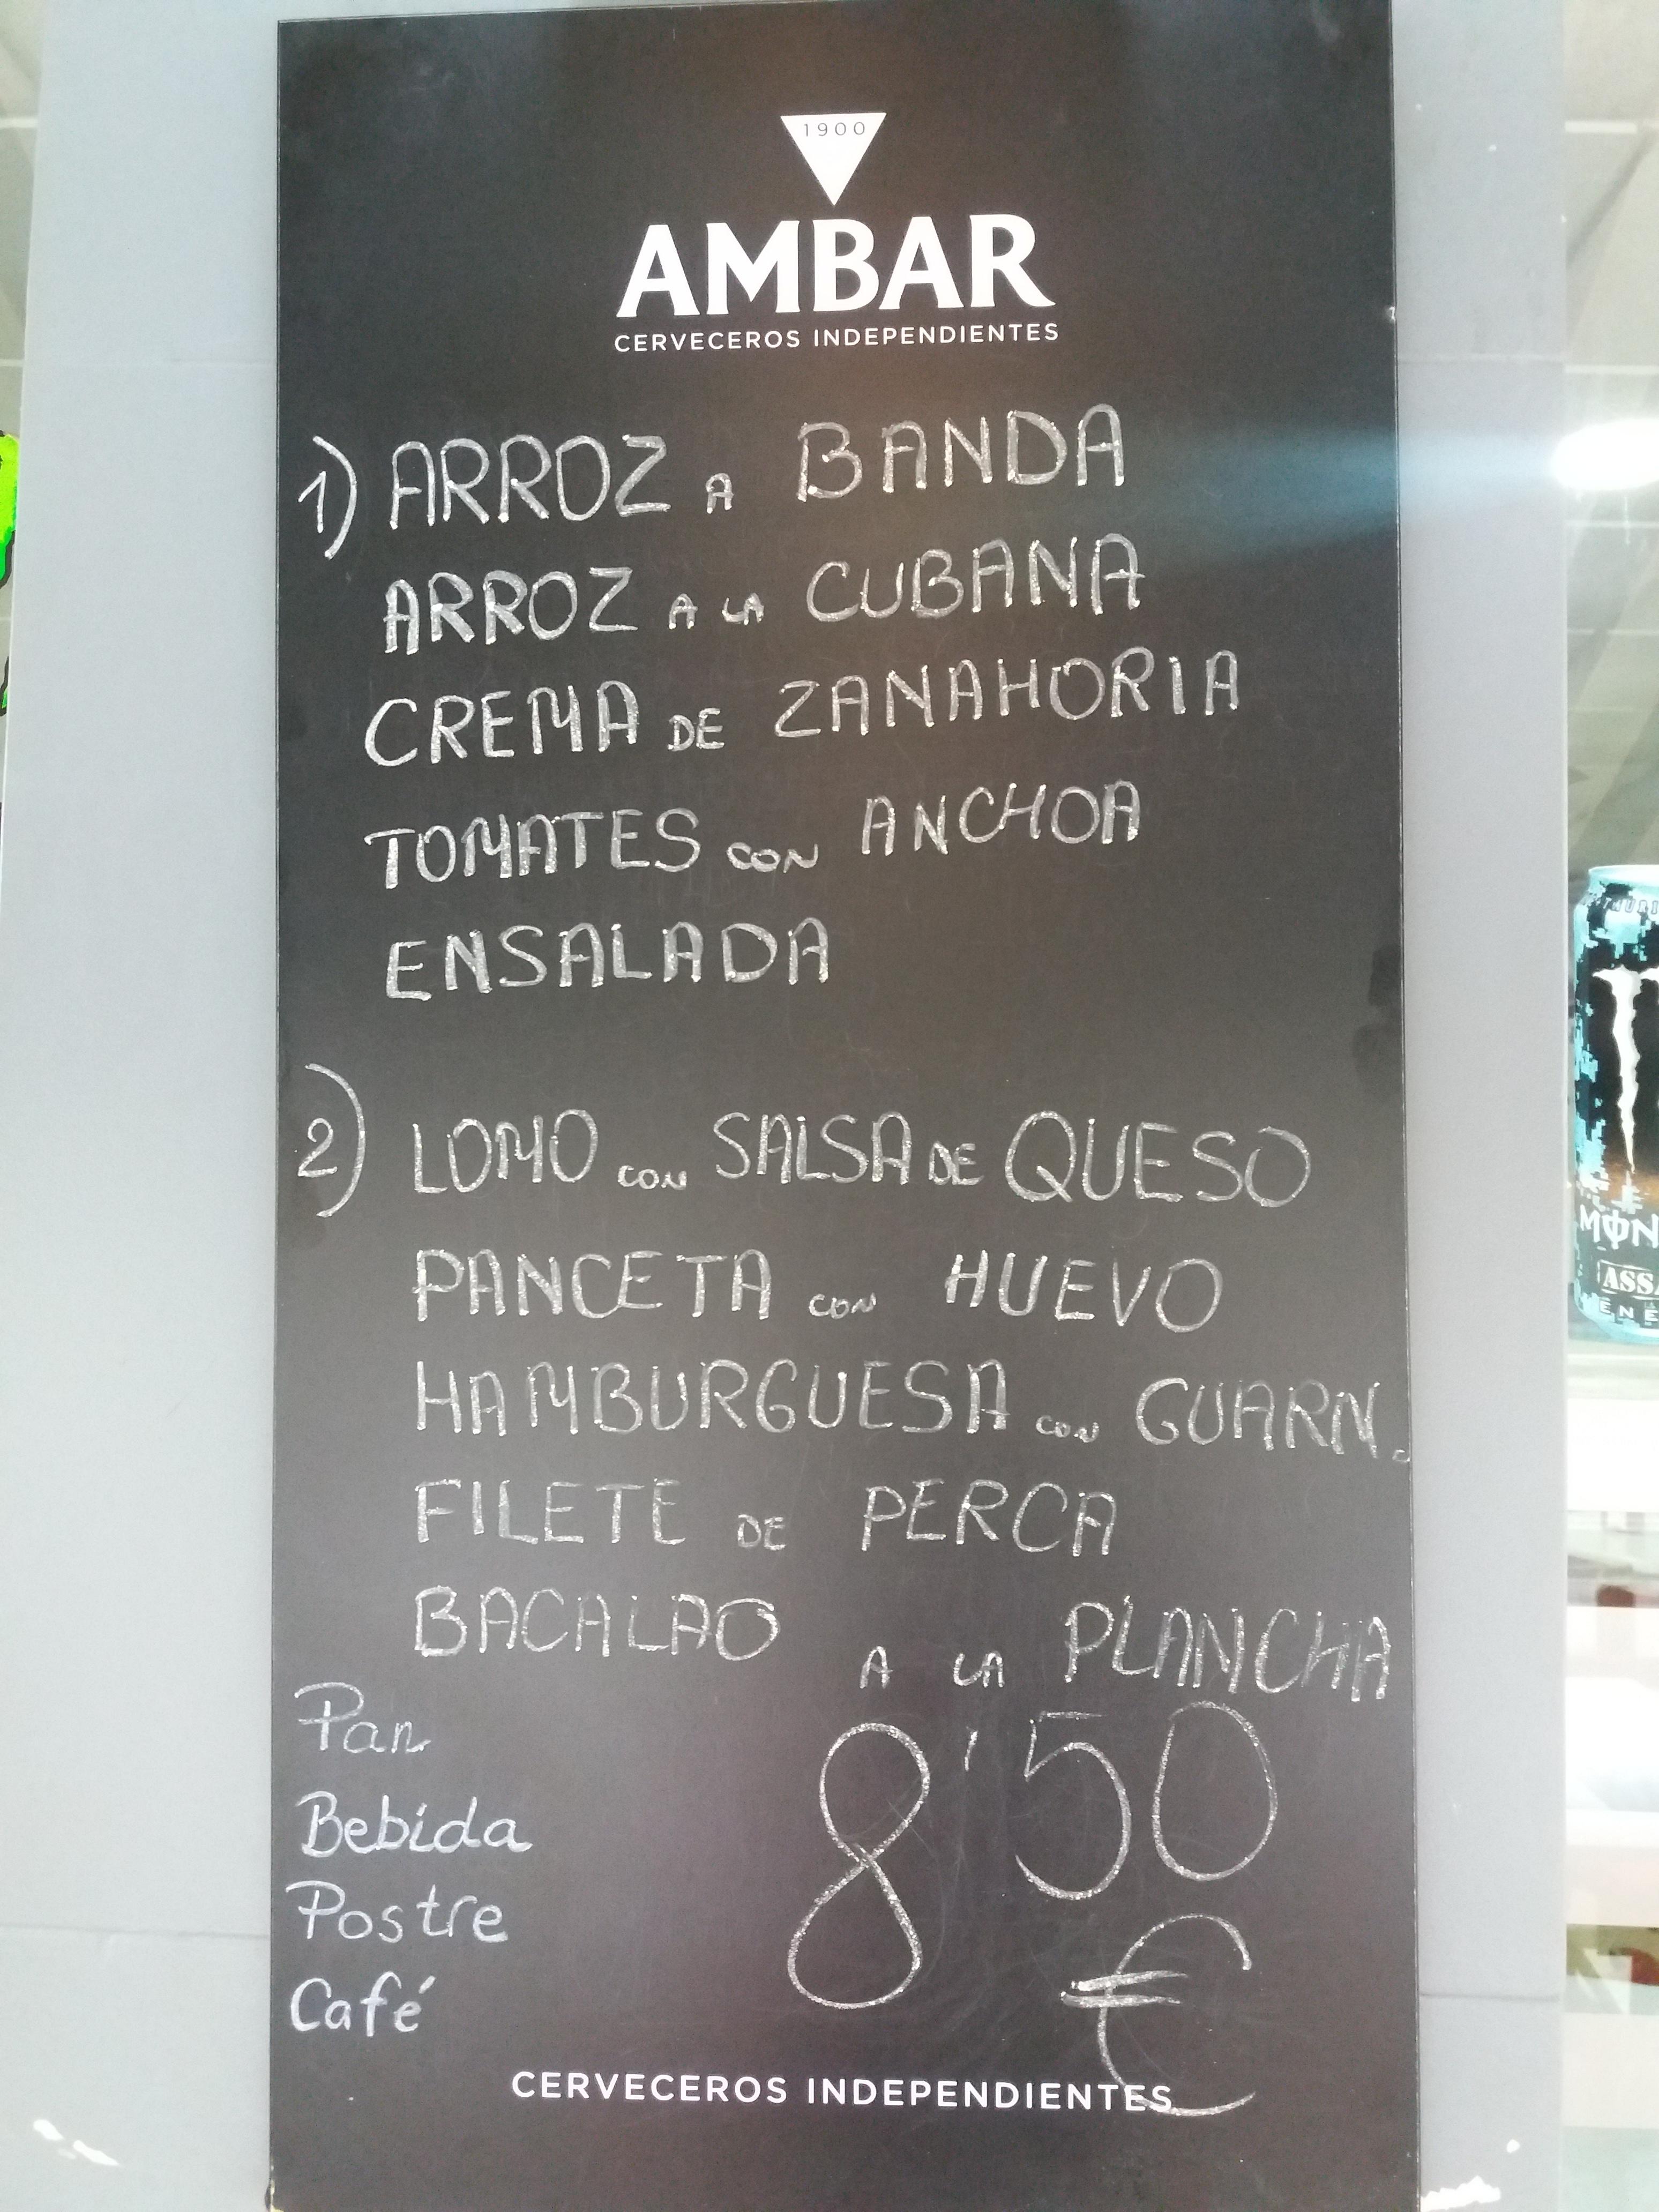 1900
AMBAR
CERVECEROS INDEPENDIENTES
1) ARROZ A BANDA
ARROZ A LA CUBANA
CREMA DE ZANAHORIA
TOMATES CON ANCHOA
ENSALADA
2) LOMO CON SALSA DE QUESO
PANCETA CON HUEVO
HAMBURGUESA CON GUARN.
FILETE DE PERCA
BACALAO A LA PLANCHA
Pan
Bebida
Postre
Café
8'50
€
CERVECEROS INDEPENDIENTES
MON
ASSA
ENE